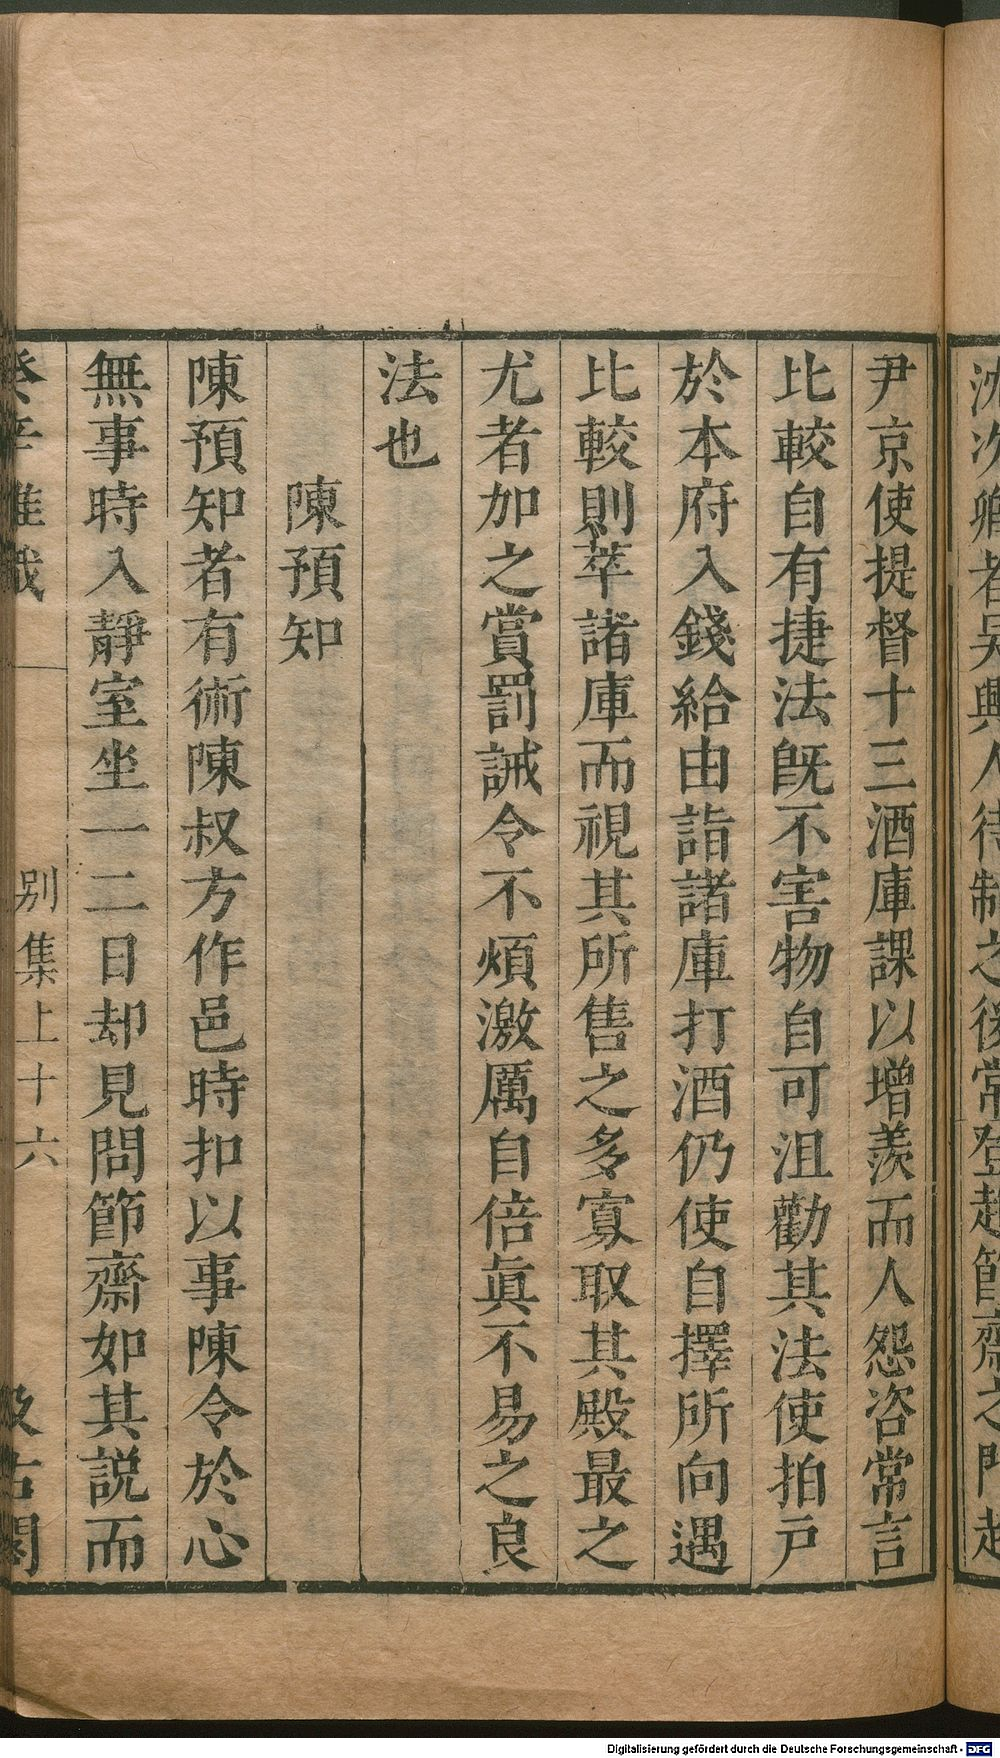 沈次卿者吳興人待制之後常登趙節齋之門趙
尹京使提督十三酒庫課以增羨而人怨咨常言
比較自有捷法旣不害物自可沮勸其法使拍戸
於本府入錢給由詣諸庫打酒仍使自擇所向遇
比較則萃諸庫而視其所售之多寡取其殿最之
尤者加之賞罰誡令不煩激厲自倍眞不易之良
法也
陳預知
陳預知者有術陳叔方作邑時扣以事陳令於心
無事時入靜室坐一二日却見問節齋如其説而
癸辛雜識
别集上十六
汲古閣
Digitalisierung gefördert durch die Deutsche Forschungsgemeinschaft - DFG